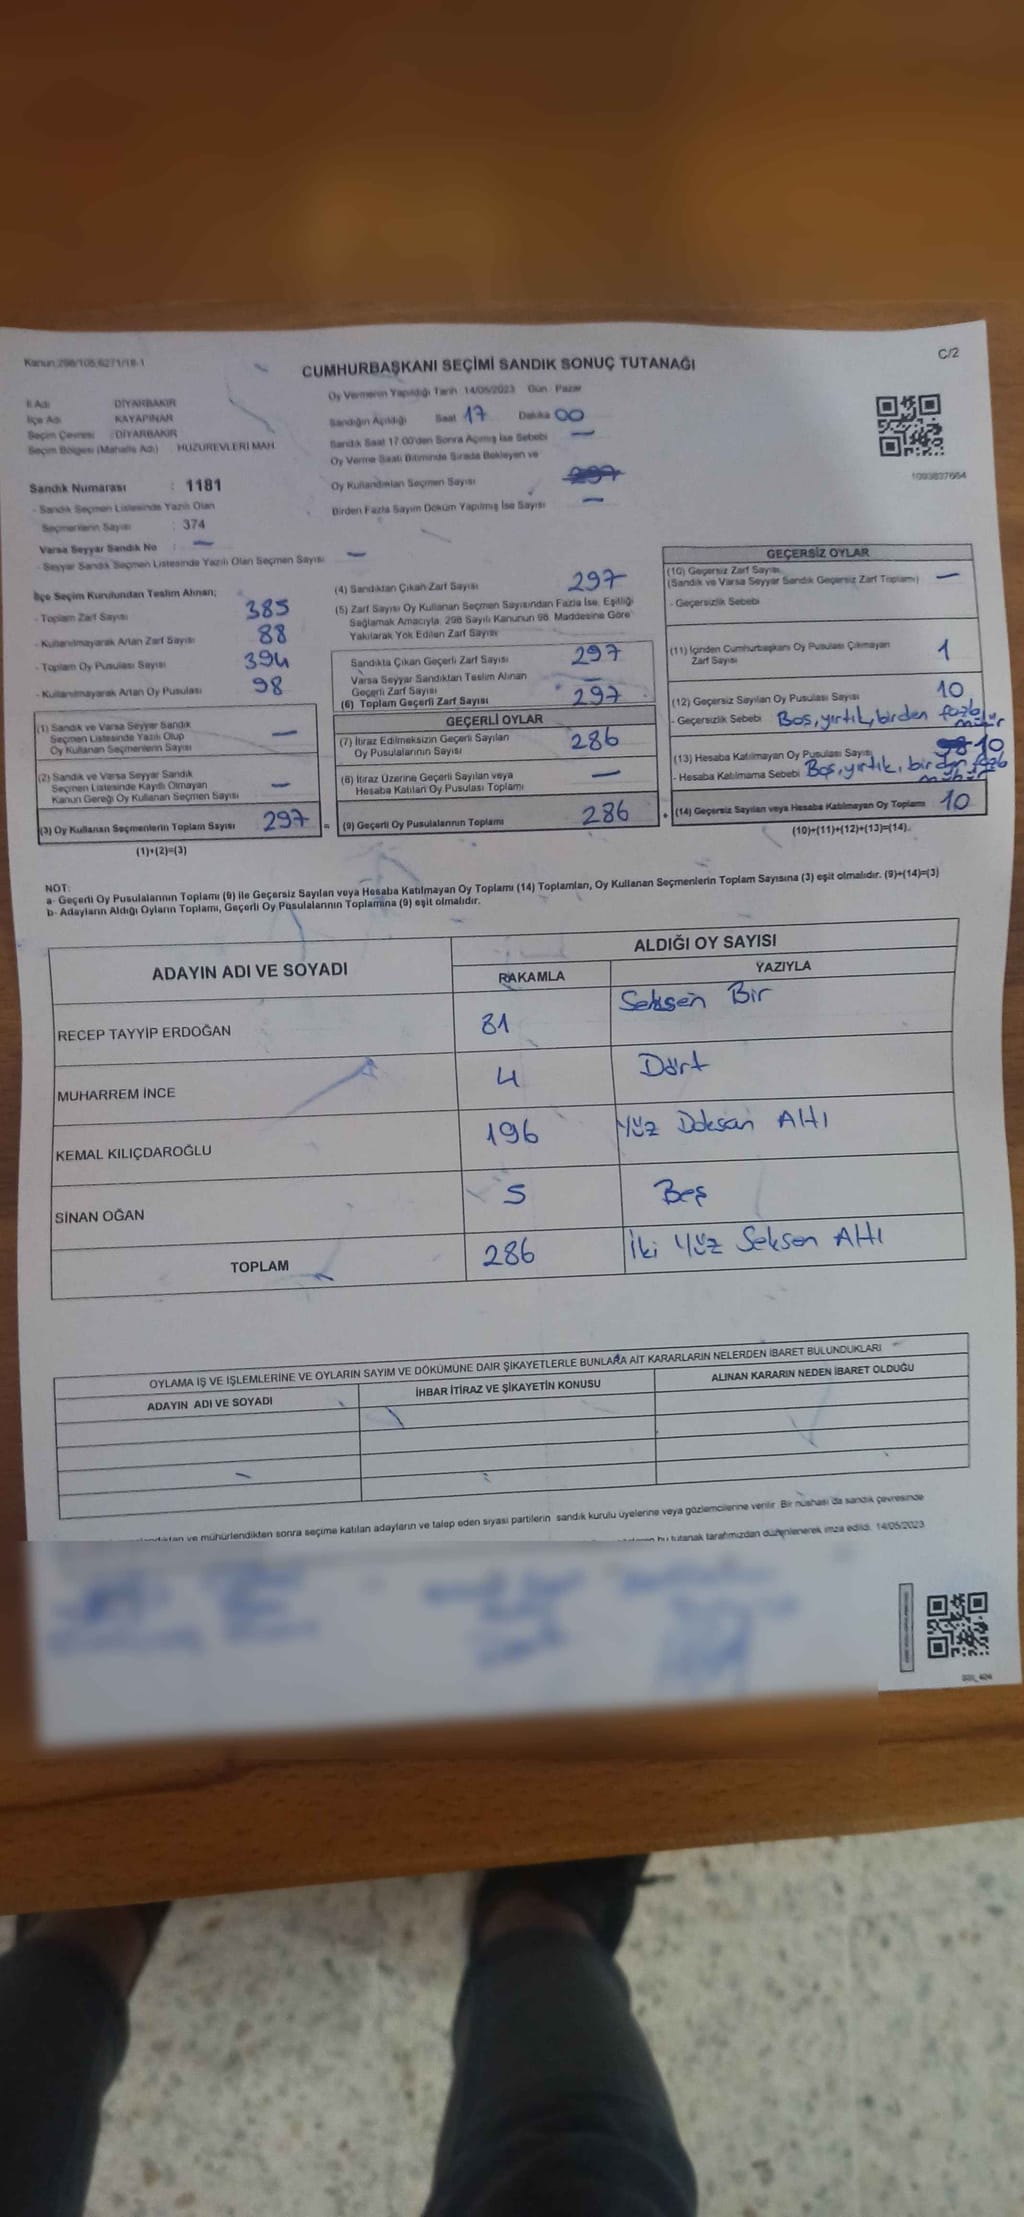 Kanun:298/105,6271/18-1
C/2
CUMHURBAŞKANI SEÇİMİ SANDIK SONUÇ TUTANAĞI
İl Adı DİYARBAKIR
İlçe Adı KAYAPINAR
Seçim Çevresi DİYARBAKIR
Seçim Bölgesi (Mahalle Adı) HUZUREVLERİ MAH.
Oy Vermenin Yapıldığı Tarih 14/05/2023 Gün Pazar
Sandığın Açıldığı Saat 17 Dakika 00
Sandık Saat 17.00'den Sonra Açılmış İse Sebebi —
Oy Verme Saati Bitiminde Sırada Bekleyen ve
Oy Kullandırılan Seçmen Sayısı
Birden Fazla Sayım Döküm Yapılmış İse Sayısı —
1093837664
Sandık Numarası : 1181
- Sandık Seçmen Listesinde Yazılı Olan
Seçmenlerin Sayısı : 374
Varsa Seyyar Sandık No : —
- Seyyar Sandık Seçmen Listesinde Yazılı Olan Seçmen Sayısı —
İlçe Seçim Kurulundan Teslim Alınan;
- Toplam Zarf Sayısı 385
- Kullanılmayarak Artan Zarf Sayısı 88
- Toplam Oy Pusulası Sayısı 394
- Kullanılmayarak Artan Oy Pusulası 98
(1) Sandık ve Varsa Seyyar Sandık
Seçmen Listesinde Yazılı Olup
Oy Kullanan Seçmenlerin Sayısı —
(2) Sandık ve Varsa Seyyar Sandık
Seçmen Listesinde Kayıtlı Olmayan
Kanun Gereği Oy Kullanan Seçmen Sayısı —
(3) Oy Kullanan Seçmenlerin Toplam Sayısı 297 =
(1)+(2)=(3)
(4) Sandıktan Çıkan Zarf Sayısı 297
(5) Zarf Sayısı Oy Kullanan Seçmen Sayısından Fazla İse, Eşitliği
Sağlamak Amacıyla, 298 Sayılı Kanunun 98. Maddesine Göre
Yakılarak Yok Edilen Zarf Sayısı
Sandıkta Çıkan Geçerli Zarf Sayısı 297
Varsa Seyyar Sandıktan Teslim Alınan
Geçerli Zarf Sayısı —
(6) Toplam Geçerli Zarf Sayısı 297
GEÇERLİ OYLAR
(7) İtiraz Edilmeksizin Geçerli Sayılan
Oy Pusulalarının Sayısı 286
(8) İtiraz Üzerine Geçerli Sayılan veya
Hesaba Katılan Oy Pusulası Toplamı —
(9) Geçerli Oy Pusulalarının Toplamı 286 +
GEÇERSİZ OYLAR
(10) Geçersiz Zarf Sayısı
(Sandık ve Varsa Seyyar Sandık Geçersiz Zarf Toplamı) —
- Geçersizlik Sebebi
(11) İçinden Cumhurbaşkanı Oy Pusulası Çıkmayan
Zarf Sayısı 1
(12) Geçersiz Sayılan Oy Pusulası Sayısı 10
- Geçersizlik Sebebi Boş, yırtık, birden fazla mühür
(13) Hesaba Katılmayan Oy Pusulası Sayısı 10
- Hesaba Katılmama Sebebi Boş, yırtık, birden fazla mühür
(14) Geçersiz Sayılan veya Hesaba Katılmayan Oy Toplamı 10
(10)+(11)+(12)+(13)=(14).
NOT:
a- Geçerli Oy Pusulalarının Toplamı (9) ile Geçersiz Sayılan veya Hesaba Katılmayan Oy Toplamı (14) Toplamları, Oy Kullanan Seçmenlerin Toplam Sayısına (3) eşit olmalıdır. (9)+(14)=(3)
b- Adayların Aldığı Oyların Toplamı, Geçerli Oy Pusulalarının Toplamına (9) eşit olmalıdır.
ADAYIN ADI VE SOYADI
ALDIĞI OY SAYISI
RAKAMLA YAZIYLA
RECEP TAYYİP ERDOĞAN 81 Seksen Bir
MUHARREM İNCE 4 Dört
KEMAL KILIÇDAROĞLU 196 Yüz Doksan Altı
SİNAN OĞAN 5 Beş
TOPLAM 286 İki Yüz Seksen Altı
OYLAMA İŞ VE İŞLEMLERİNE VE OYLARIN SAYIM VE DÖKÜMÜNE DAİR ŞİKAYETLERLE BUNLARA AİT KARARLARIN NELERDEN İBARET BULUNDUKLARI
ADAYIN ADI VE SOYADI İHBAR İTİRAZ VE ŞİKAYETİN KONUSU ALINAN KARARIN NEDEN İBARET OLDUĞU
ve mühürlendikten sonra seçime katılan adayların ve talep eden siyasi partilerin sandık kurulu üyelerine veya gözlemcilerine verilir. Bir nüshası da sandık çevresinde
bu tutanak tarafımızdan düzenlenerek imza edildi. 14/05/2023